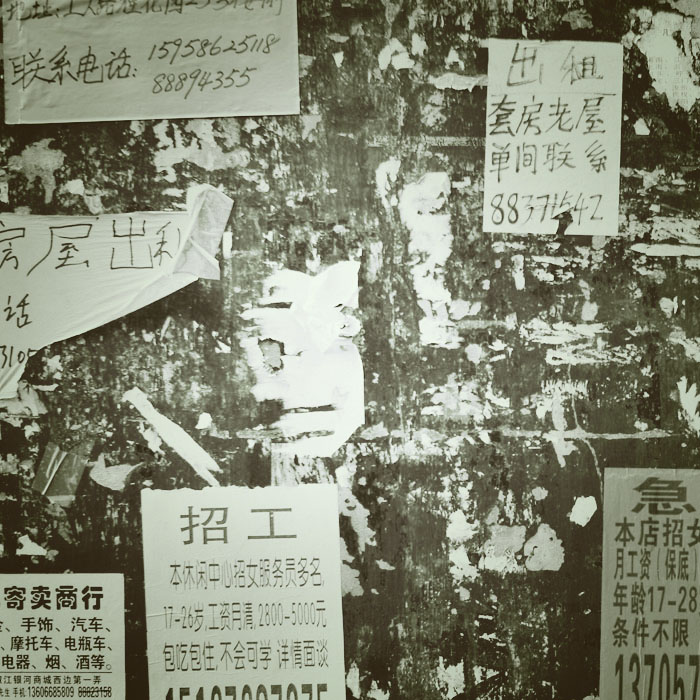 联系电话: 15958625118
88894355
出租
套房老屋
单间联系
88371542
房屋出租
话
3105
招工
本休闲中心招女服务员多名,
17-26岁,工资月清,2800-5000元
包吃包住,不会可学 详情面谈
寄卖商行
、手饰、汽车、
、摩托车、电瓶车、
电器、烟、酒等。
江银河商城西边第一弄
先生 手机 13606685809 88823158
急
本店招女
月工资(保底
年龄17-28
条件不限
13705